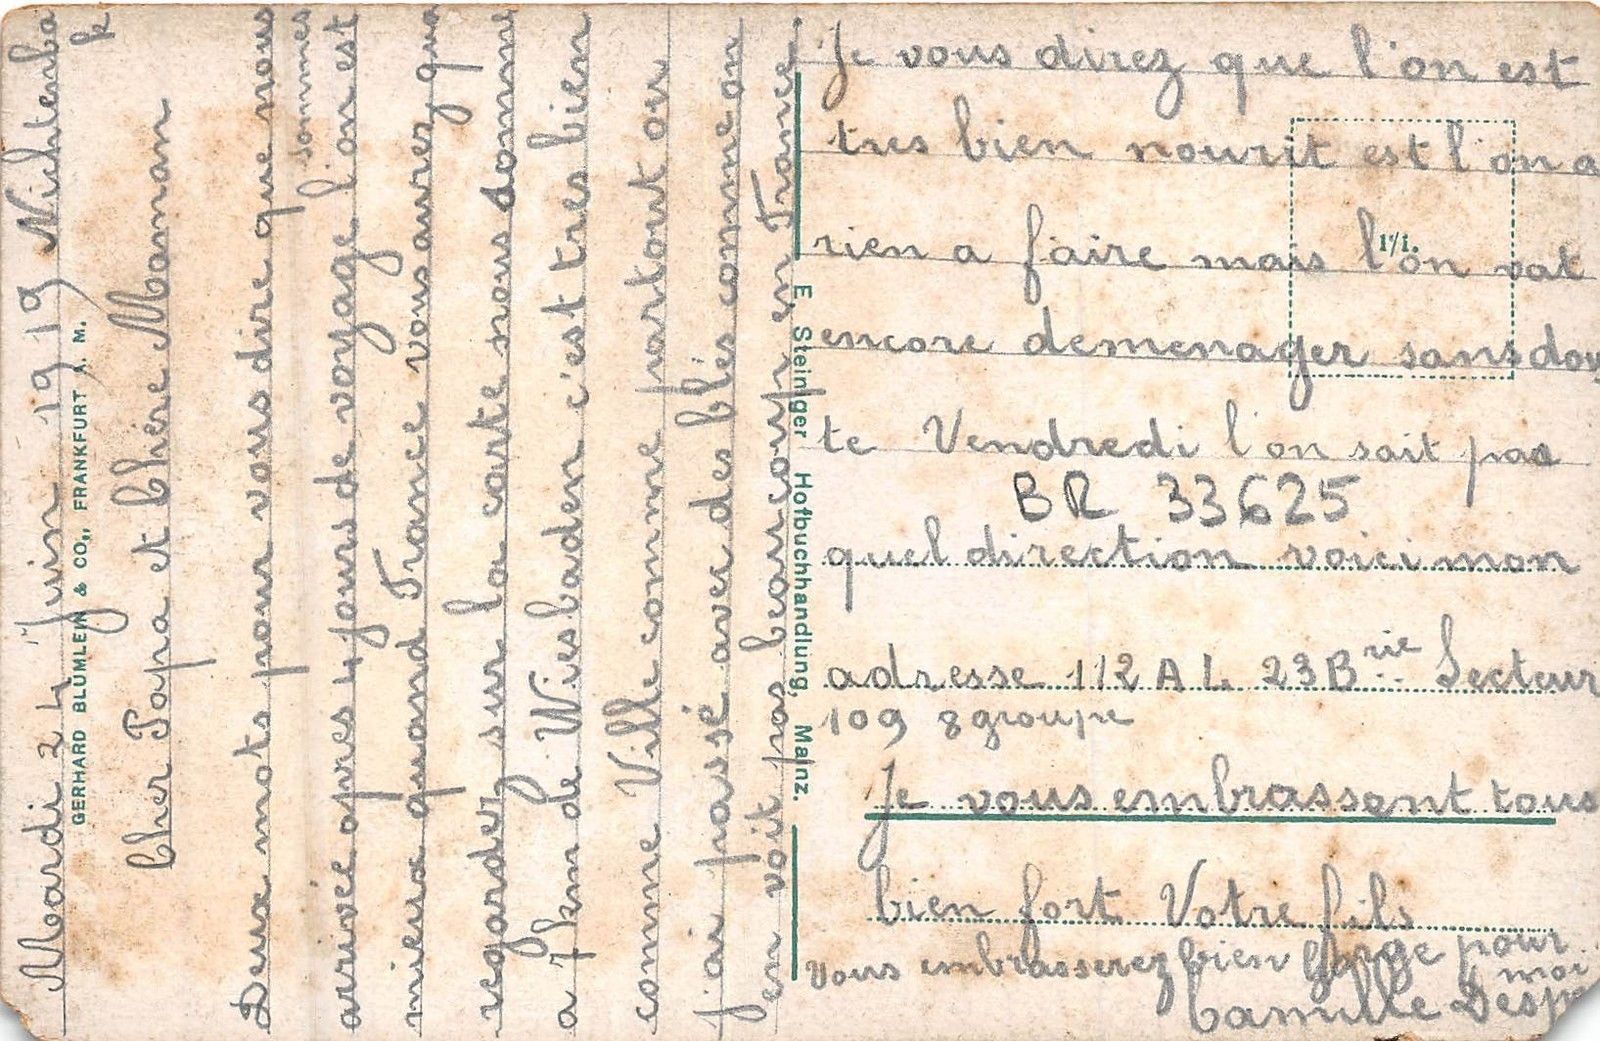 Mardi 24 Juin 1919 Nichtenba
k
Cher Papa et Chère Maman
Deux mots pour vous dire que nous
sommes
arrivée apres 4 jours de voyage l'on est
mieux quand France vous aurez qua
regarder sur la carte nous somme
a 7 km de Wiesbaden c'est tres bien
comme Ville comme partout ou
j'ai passé avec des blés comme on
en voit pas beaucoup en France
GERHARD BLÜMLEIN & CO., FRANKFURT A. M.
E. Steiniger Hofbuchhandlung, Mainz.
1/1.
Je vous direz que l'on est
tres bien nourit est l'on a
rien a faire mais l'on vat
encore demenager sans dou
te Vendredi l'on sait pas
BR 33625
quel direction voici mon
adresse 112 A L 23 Brie Secteur
109 8 groupe
Je vous embrassent tous
bien fort Votre fils
Vous embrasserez bien pour
moi
Camille